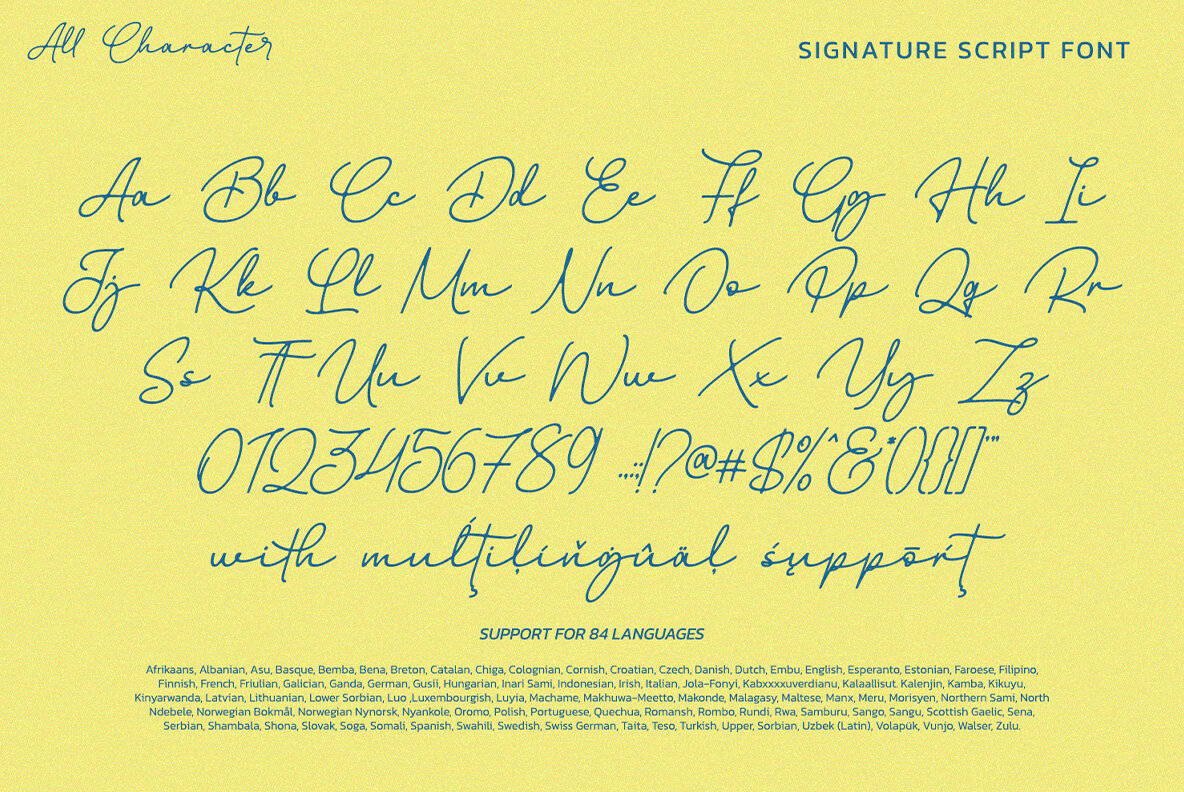 All Character
SIGNATURE SCRIPT FONT
Aa Bb Cc Dd Ee Ff Gg Hh Ii
Jj Kk Ll Mm Nn Oo Pp Qq Rr
Ss Tt Uu Vv Ww Xx Yy Zz
0123456789 .,:;!?@#$%^&*(){}[]"'
with muĺţiļíňġûäļ śųppōŕţ
SUPPORT FOR 84 LANGUAGES
Afrikaans, Albanian, Asu, Basque, Bemba, Bena, Breton, Catalan, Chiga, Colognian, Cornish, Croatian, Czech, Danish, Dutch, Embu, English, Esperanto, Estonian, Faroese, Filipino,
Finnish, French, Friulian, Galician, Ganda, German, Gusii, Hungarian, Inari Sami, Indonesian, Irish, Italian, Jola-Fonyi, Kabxxxxuverdianu, Kalaallisut. Kalenjin, Kamba, Kikuyu,
Kinyarwanda, Latvian, Lithuanian, Lower Sorbian, Luo ,Luxembourgish, Luyia, Machame, Makhuwa-Meetto, Makonde, Malagasy, Maltese, Manx, Meru, Morisyen, Northern Sami, North
Ndebele, Norwegian Bokmål, Norwegian Nynorsk, Nyankole, Oromo, Polish, Portuguese, Quechua, Romansh, Rombo, Rundi, Rwa, Samburu, Sango, Sangu, Scottish Gaelic, Sena,
Serbian, Shambala, Shona, Slovak, Soga, Somali, Spanish, Swahili, Swedish, Swiss German, Taita, Teso, Turkish, Upper, Sorbian, Uzbek (Latin), Volapük, Vunjo, Walser, Zulu.